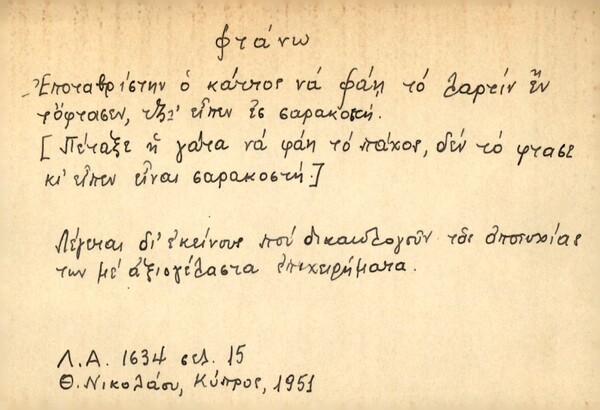 φτάνω
Ἐποταβρίστην ὁ κάττος νά φάῃ τό λαρτίν ἔν
τὄφτασεν, τζ' εἶπεν ἐς σαρακοστή.
[Πέταξε ἡ γάτα νά φάη τό πάχος, δέν τό φτασε
κι' εἶπεν εἶναι σαρακοστή.]
Λέγεται δι' ἐκείνους πού δικαιολογοῦν τάς ἀποτυχίας
των μέ ἀξιογέλαστα ἐπιχειρήματα.
Λ.Α. 1634 σελ. 15
Θ. Νικολάου, Κύπρος, 1951